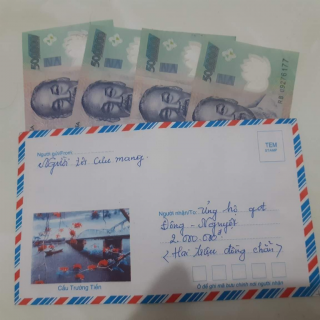 500000
500000
500000
500000
Người gửi/From:
Người ta cưu mang
TEM
STAMP
Người nhận/To:
Ủng hộ quỹ
Đông - Nguyệt
2.000.000đ
(Hai triệu đồng chẵn)
Cầu Trường Tiền